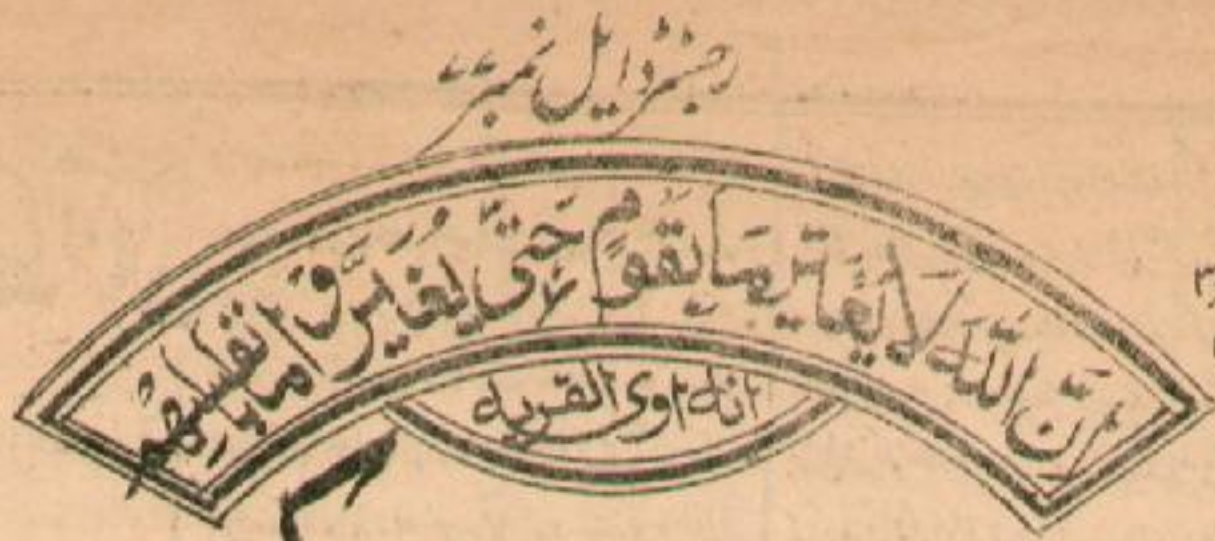 رجسٹرڈ ایل نمبر ۷۷
اِنَّ اللّٰهَ لَا یُغَایِّرُ مَا بِقَوْمٍ حَتّٰی یُغَایِّرُوْا مَا بِاَنْفُسِهِمْ
انه اوی القریه